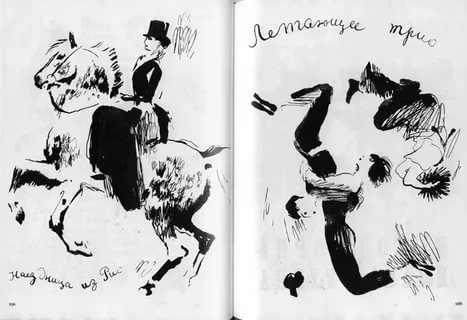 Наездница из
108
Летающее трио
109